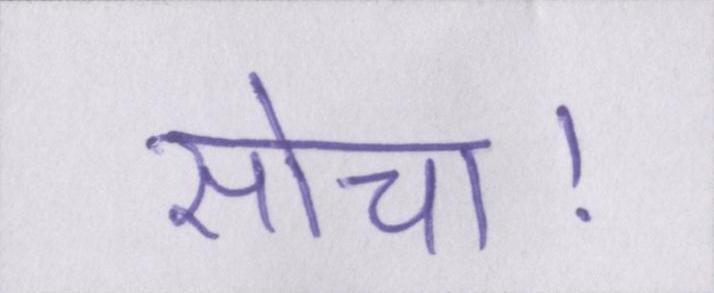 सोचा!